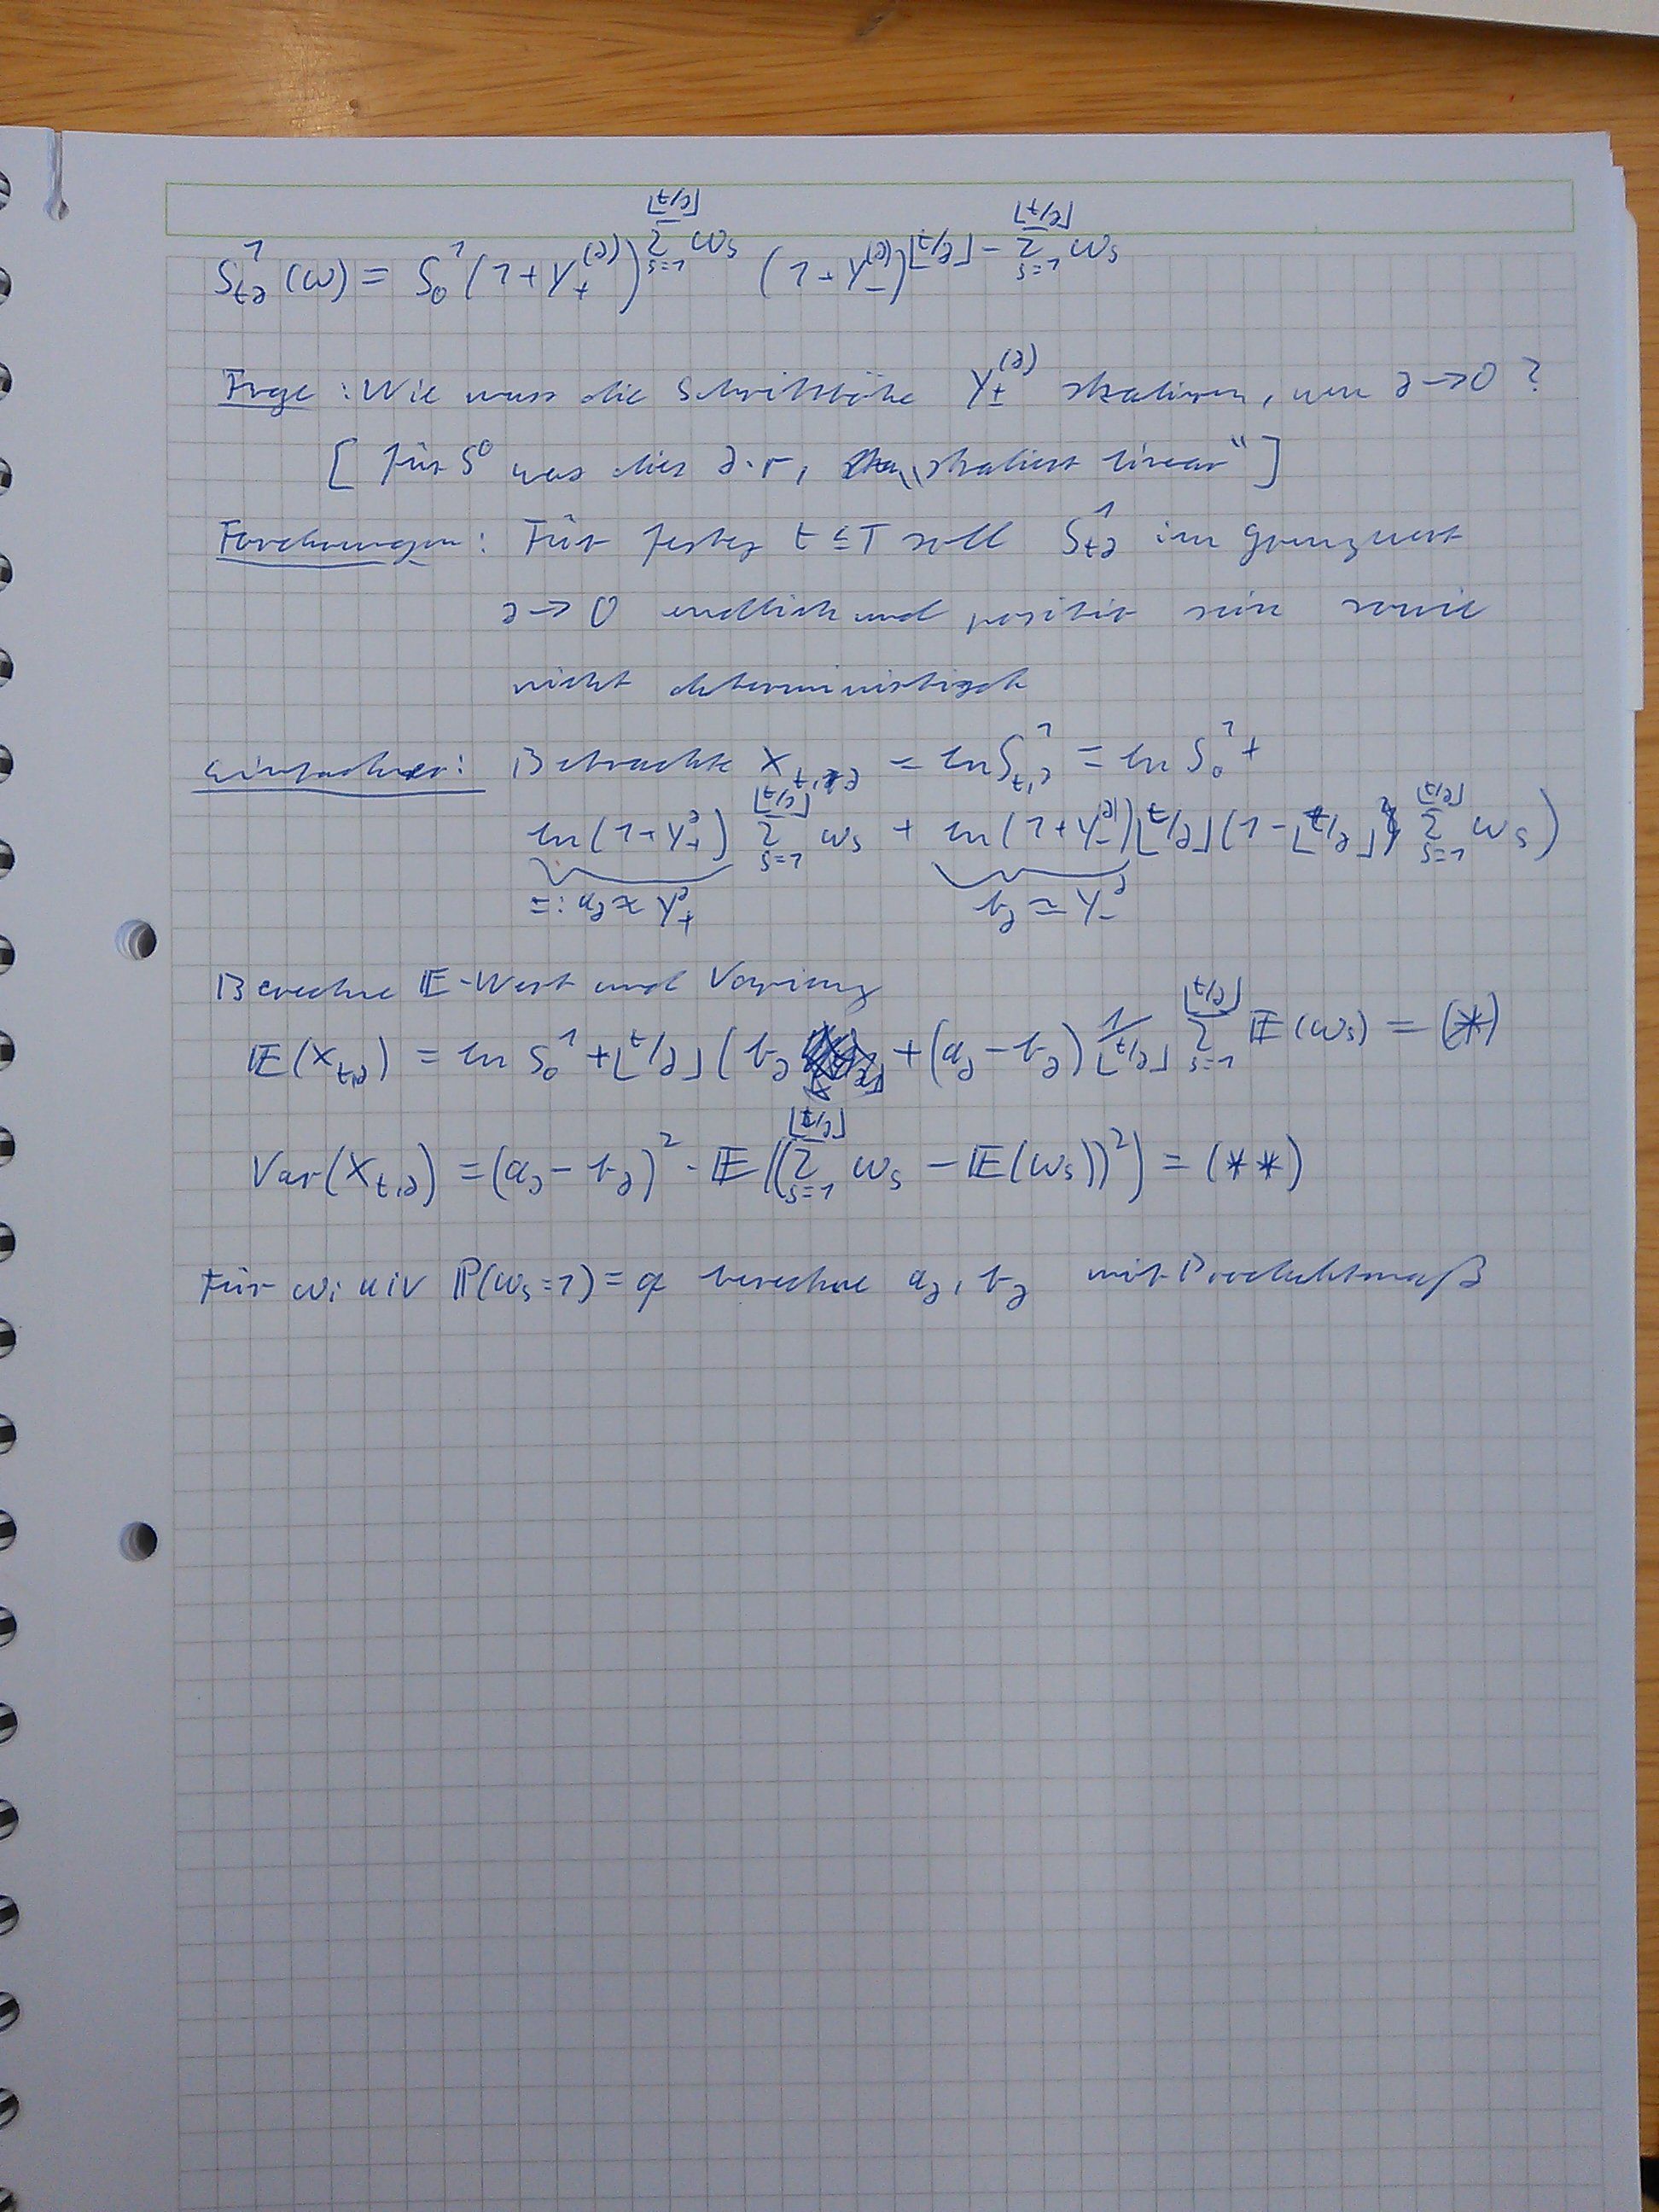 S^1_{t∂}(ω) = S^1_0 (1+Y_+^{(∂)})^{∑_{s=1}^{⌊t/∂⌋} ω_s} (1+Y_-^{(∂)})^{⌊t/∂⌋ - ∑_{s=1}^{⌊t/∂⌋} ω_s}
Frage: Wie muss die Schritthöhe Y_±^{(∂)} skalieren, wenn ∂→0 ?
[ für S^0 war dies ∂·r, „skaliert linear“ ]
Forderungen: Für festes t ≤ T soll S^1_{t∂} im Grenzwert
∂→0 endlich und positiv sein sowie
nicht deterministisch
Einfacher: Betrachte X_{t,∂} = ln S^1_{t,∂} = ln S^1_0 +
ln(1+Y_+^∂) ∑_{s=1}^{⌊t/∂⌋} ω_s + ln(1+Y_-^∂) ⌊t/∂⌋ (1-⌊t/∂⌋ ∑_{s=1}^{⌊t/∂⌋} ω_s)
=: a_∂ ≈ Y_+^∂ b_∂ ≈ Y_-^∂
Berechne 𝔼-Wert und Varianz
𝔼(X_{t,∂}) = ln S^1_0 + ⌊t/∂⌋ (b_∂ + (a_∂ - b_∂) 1/⌊t/∂⌋ ∑_{s=1}^{⌊t/∂⌋} 𝔼(ω_s) = (*)
Var(X_{t,∂}) = (a_∂ - b_∂)^2 · 𝔼((∑_{s=1}^{⌊t/∂⌋} ω_s - 𝔼(ω_s))^2) = (**)
Für ω_i uiv ℙ(ω_s=1) = q berechne a_∂, b_∂ mit Produktmaß